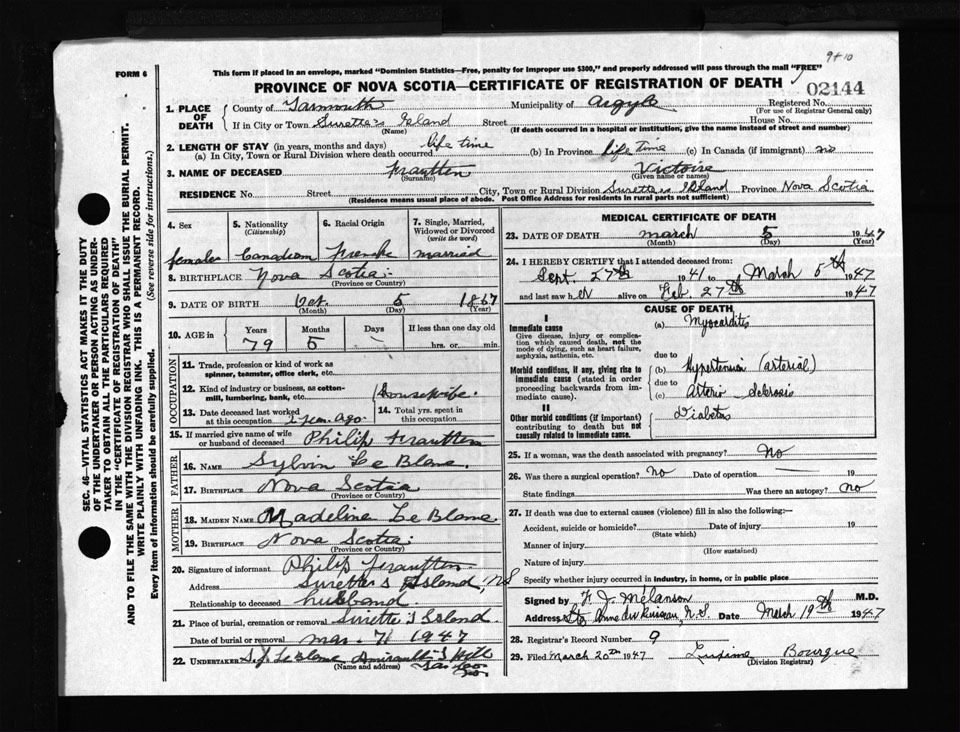 9+10
FORM 6
This form if placed in an envelope, marked "Dominion Statistics—Free, penalty for improper use $300," and properly addressed will pass through the mail "FREE"
PROVINCE OF NOVA SCOTIA—CERTIFICATE OF REGISTRATION OF DEATH
02144
1. PLACE OF DEATH
County of Yarmouth Municipality of Argyle Registered No.
(For use of Registrar General only)
If in City or Town Surette's Island Street House No.
(Name) (If death occurred in a hospital or institution, give the name instead of street and number)
2. LENGTH OF STAY (in years, months and days)
(a) In City, Town or Rural Division where death occurred life time (b) In Province life time (c) In Canada (if immigrant) no
3. NAME OF DECEASED Victoire
(Surname) (Given name or names)
RESIDENCE No. Street City, Town or Rural Division Surette's Island Province Nova Scotia
(Residence means usual place of abode. Post Office Address for residents in rural parts not sufficient)
4. Sex
5. Nationality
(Citizenship)
6. Racial Origin
7. Single, Married, Widowed or Divorced
(write the word)
female Canadian French married
8. BIRTHPLACE Nova Scotia
(Province or Country)
9. DATE OF BIRTH Oct. 5 1867
(Month) (Day) (Year)
10. AGE in
Years Months Days If less than one day old
79 5 hrs. or min.
OCCUPATION
11. Trade, profession or kind of work as spinner, teamster, office clerk, etc.
12. Kind of industry or business, as cotton-mill, lumbering, bank, etc. Housewife.
13. Date deceased last worked at this occupation year ago
14. Total yrs. spent in this occupation
15. If married give name of wife or husband of deceased Philip
FATHER
16. NAME Sylvin Le Blanc.
17. BIRTHPLACE Nova Scotia
(Province or Country)
MOTHER
18. MAIDEN NAME Madeline Le Blanc
19. BIRTHPLACE Nova Scotia
(Province or Country)
20. Signature of informant Philip
Address Surette's Island, NS
Relationship to deceased husband
21. Place of burial, cremation or removal Surette's Island
Date of burial or removal Mar. 7 1947
22. UNDERTAKER S.J. LeBlanc Amirault's Hill
(Name and address) Yar. Co.
MEDICAL CERTIFICATE OF DEATH
23. DATE OF DEATH March 5 1947
(Month) (Day) (Year)
24. I HEREBY CERTIFY that I attended deceased from:
Sept. 27th 1941 to March 5th 1947
and last saw her alive on Feb. 27th 1947
CAUSE OF DEATH
I
Immediate cause
Give disease, injury or complication which caused death, not the mode of dying, such as heart failure, asphyxia, asthenia, etc.
(a) Myocarditis
due to
Morbid conditions, if any, giving rise to immediate cause (stated in order proceeding backwards from immediate cause)
(b) Hypertension (arterial)
due to
(c) Arterio sclerosis
II
Other morbid conditions (if important) contributing to death but not causally related to immediate cause.
Diabetes
25. If a woman, was the death associated with pregnancy? No
26. Was there a surgical operation? No Date of operation — 19
State findings Was there an autopsy? No
27. If death was due to external causes (violence) fill in also the following:—
Accident, suicide or homicide? Date of injury 19
(State which)
Manner of injury
(How sustained)
Nature of injury
Specify whether injury occurred in industry, in home, or in public place
Signed by F. J. Melanson M.D.
Address Ste. Anne du Ruisseau, N.S. Date March 19th 1947
28. Registrar's Record Number 9
29. Filed March 20th 1947 Bourque
(Division Registrar)
SEC. 46—VITAL STATISTICS ACT MAKES IT THE DUTY
OF THE UNDERTAKER OR PERSON ACTING AS UNDER-
TAKER TO OBTAIN ALL THE PARTICULARS REQUIRED
IN THE "CERTIFICATE OF REGISTRATION OF DEATH"
AND TO FILE THE SAME WITH THE DIVISION REGISTRAR WHO SHALL ISSUE THE BURIAL PERMIT.
WRITE PLAINLY WITH UNFADING INK. THIS IS A PERMANENT RECORD.
Every item of information should be carefully supplied. (See reverse side for instructions.)